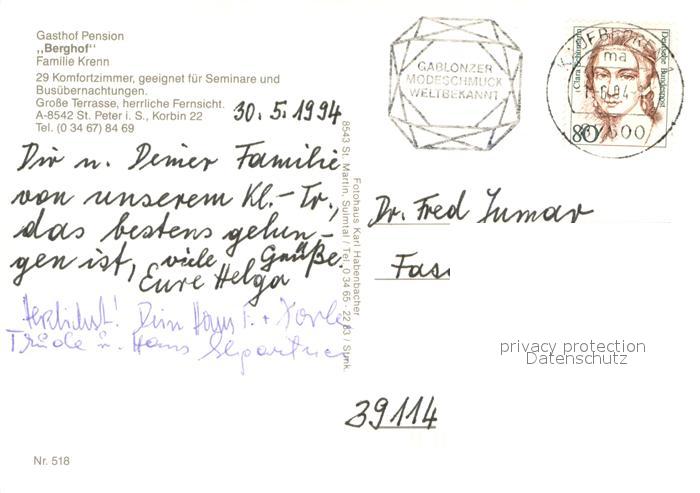 Gasthof Pension
„Berghof“
Familie Krenn
29 Komfortzimmer, geeignet für Seminare und
Busübernachtungen.
Große Terrasse, herrliche Fernsicht.
A-8542 St. Peter i. S., Korbin 22
Tel. (0 34 67) 84 69
30.5.1994
Dir u. Deiner Familie
von unserem Kl.-Tr.,
das bestens gelun-
gen ist, viele Grüße.
Eure Helga
Herzlichst! Dein Hans
Trude u. Hans
Nr. 518
Fotohaus Karl Habenbacher
8543 St. Martin, Sulmtal / Tel. 0 34 65 - 22 83 / Stmk.
GABLONZER
MODESCHMUCK
WELTBEKANNT
Clara Schumann
Deutsche Bundespost
80
ma
87600
Dr. Fred Jumar
Fas
39114
privacy protection
Datenschutz